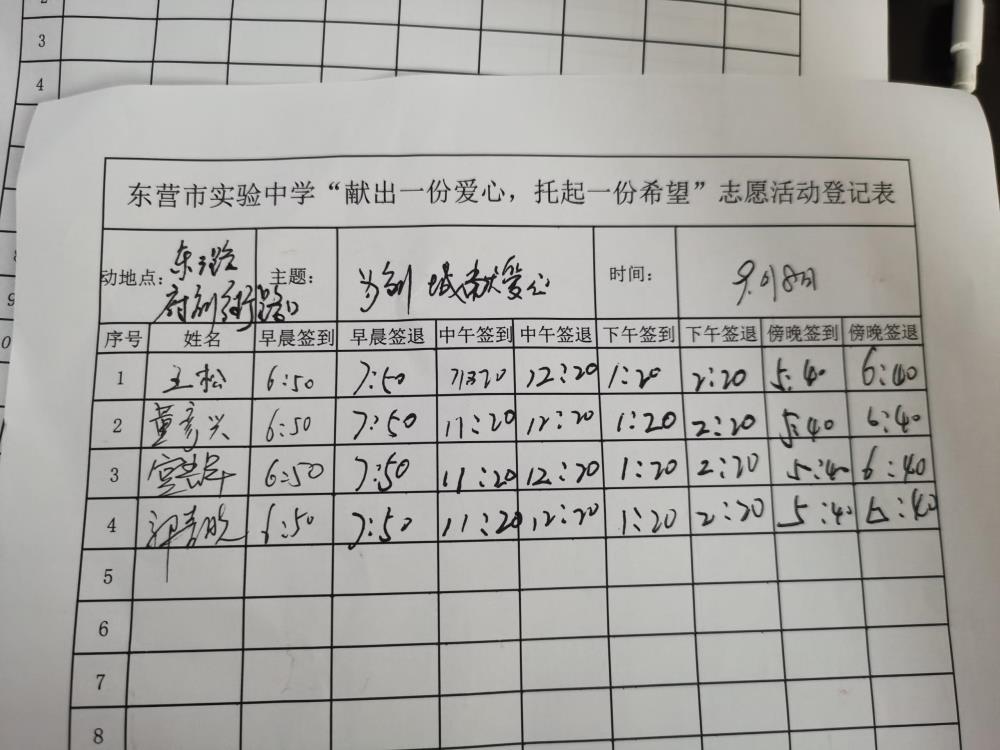 2
3
4
东营市实验中学“献出一份爱心，托起一份希望”志愿活动登记表
动地点： 东三路 府前街路口 主题： 为创城献爱心 时间： 9月18日
序号 姓名 早晨签到 早晨签退 中午签到 中午签退 下午签到 下午签退 傍晚签到 傍晚签退
1 王松 6:50 7:50 11:20 12:20 1:20 2:20 5:40 6:40
2 董彦兴 6:50 7:50 11:20 12:20 1:20 2:20 5:40 6:40
3 6:50 7:50 11:20 12:20 1:20 2:20 5:40 6:40
4 6:50 7:50 11:20 12:20 1:20 2:20 5:40 6:40
5
6
7
8